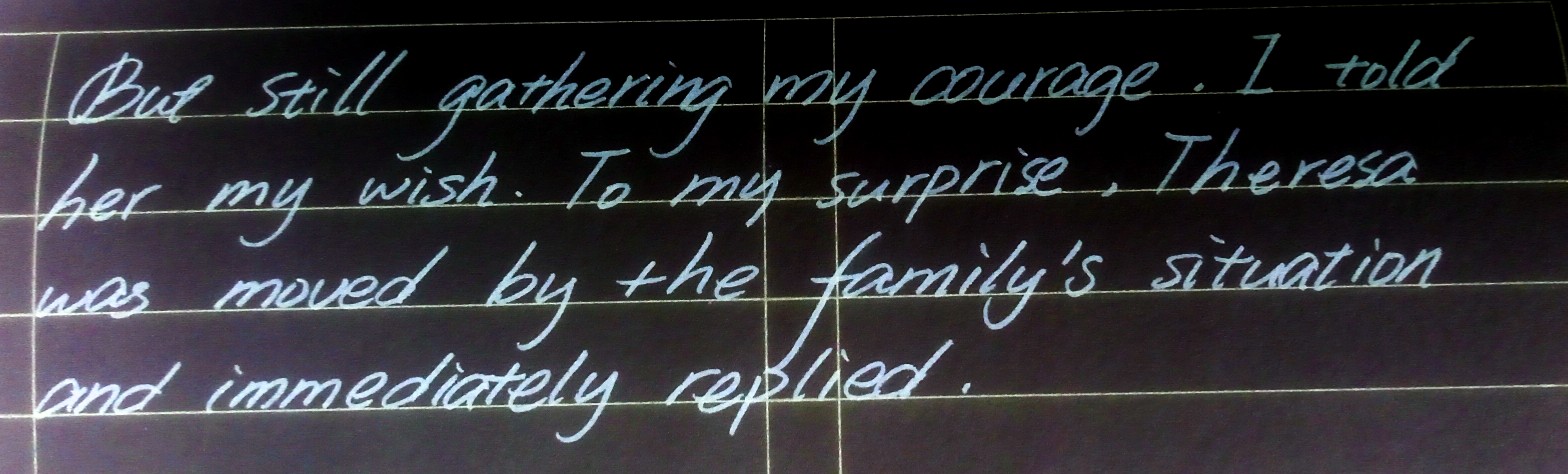 But still gathering my courage. I told
her my wish. To my surprise, Theresa
was moved by the family's situation
and immediately replied.